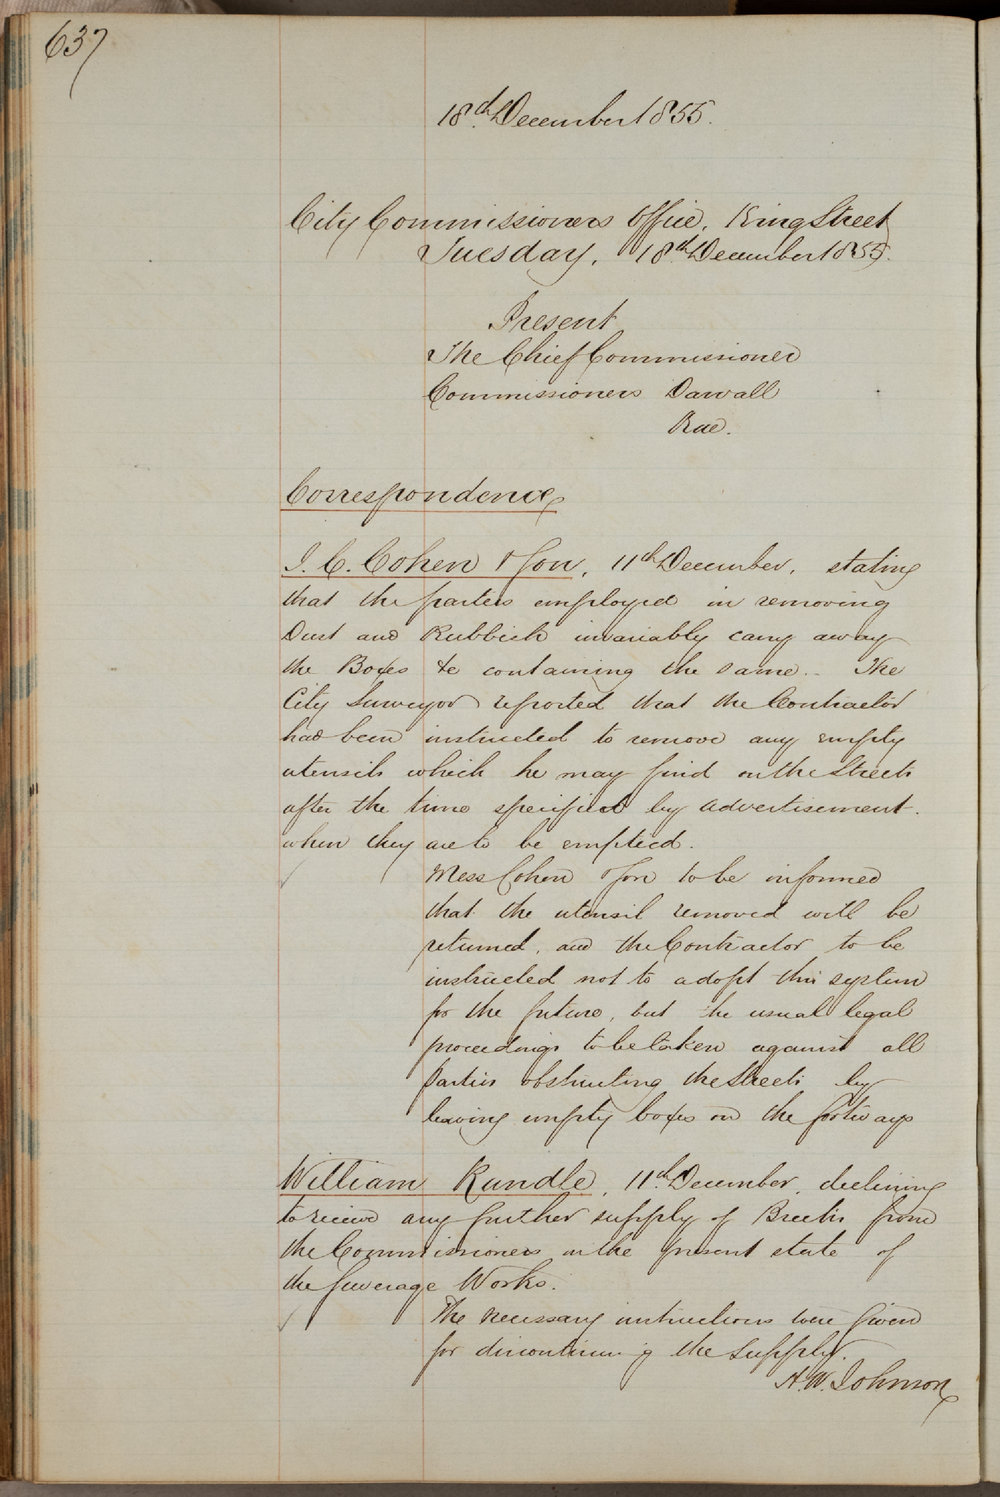 637
18th December 1855.
City Commissioners Office, King Street
Tuesday, 18th December 1855.
Present
The Chief Commissioner
Commissioners Darvall
Rae.
Correspondence
I. C. Cohen & Son, 11th December, stating
that the parties employed in removing
Dust and Rubbish invariably carry away
the Boxes &c containing the same.. The
City Surveyor reported that the Contractor
had been instructed to remove any empty
utensils which he may find on the Streets
after the time specified by advertisement.
when they are to be emptied.
Mess Cohen & Son to be informed
that the utensil removed will be
returned, and the Contractor to be
instructed not to adopt this system
for the future, but the usual legal
proceedings to be taken against all
Parties obstructing the Streets by
leaving empty boxes on the footways
William Rundle, 11th December, declining
to receive any further supply of Bricks from
the Commissioners in the present state of
the Sewerage Works.
The necessary instructions were given
for discontinuing the Supply.
A. W. Johnson